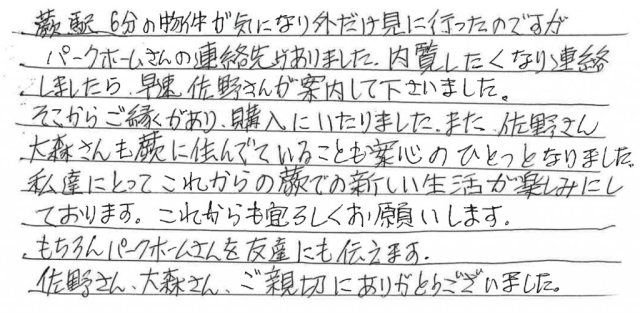 蕨駅 6分の物件が気になり外だけ見に行ったのですが
パークホームさんの連絡先がありました、内覧したくなり連絡
しましたら、早速 佐野さんが案内して下さいました。
そこからご縁があり、購入にいたりました、また、佐野さん
大森さんも蕨に住んでていることも安心のひとつとなりました。
私達にとってこれからの蕨での新しい生活が楽しみにし
ております。これからも宜ろしくお願いします。
もちろんパークホームさんを友達にも伝えます。
佐野さん、大森さん、ご親切にありがとうございました。